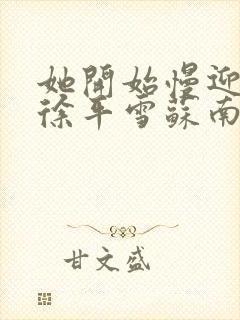 她開始慢迎
徐平雪蘇南
甘文盛